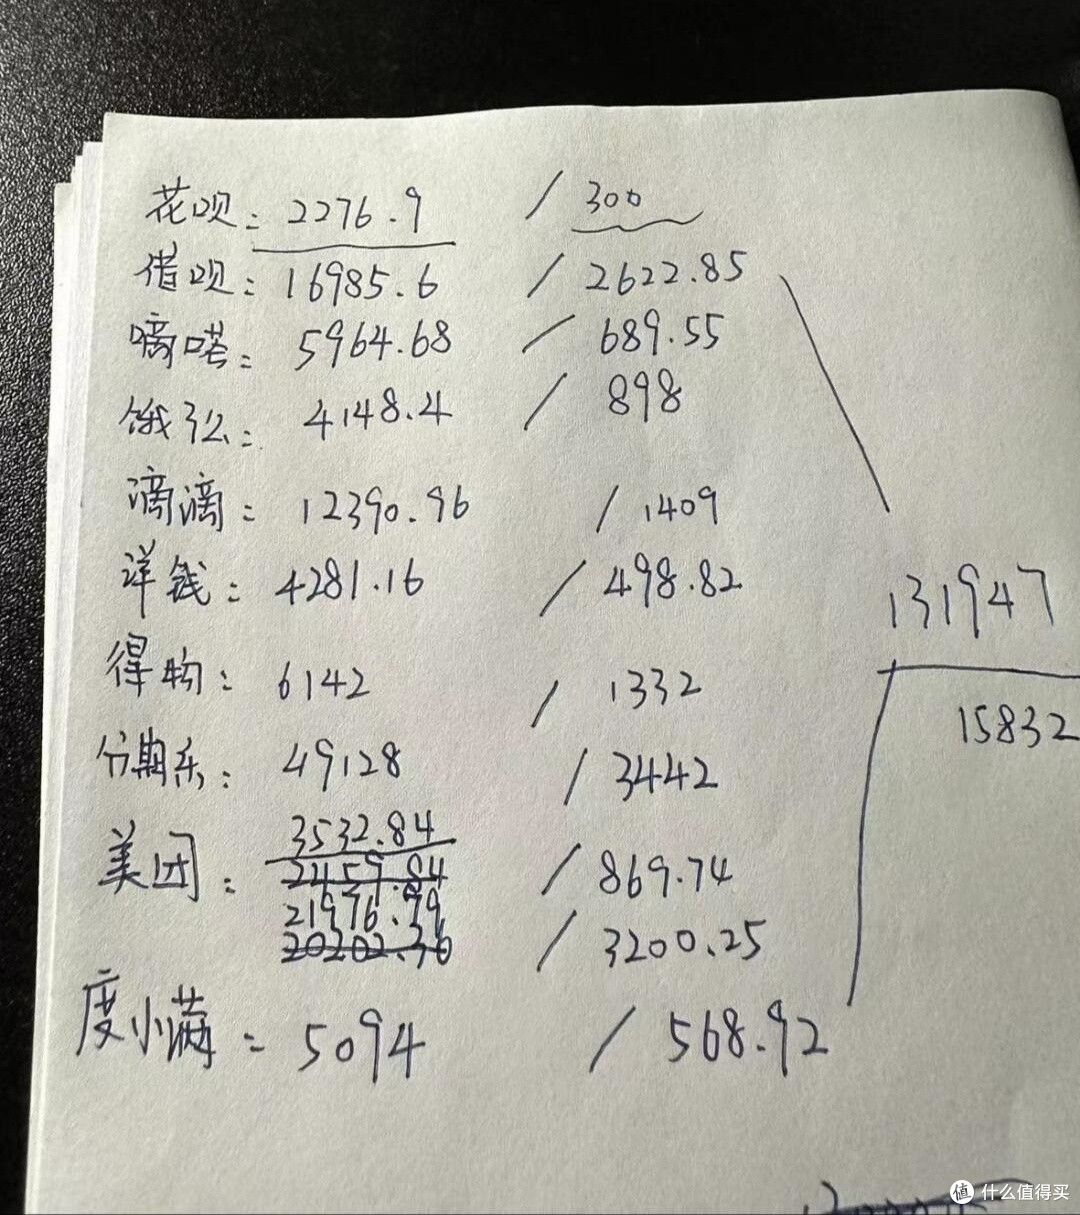 花呗: 2276.9 / 300
借呗: 16985.6 / 2622.85
嘀嗒: 5964.68 / 689.55
饿了么: 4148.4 / 898
滴滴: 12390.96 / 1409
洋钱: 4281.16 / 498.82
131947
得物: 6142 / 1332
15832
分期乐: 49128 / 3442
3532.84
美团: / 869.74
21976.79
/ 3200.25
20202.36
度小满: 5094 / 568.92
值 什么值得买